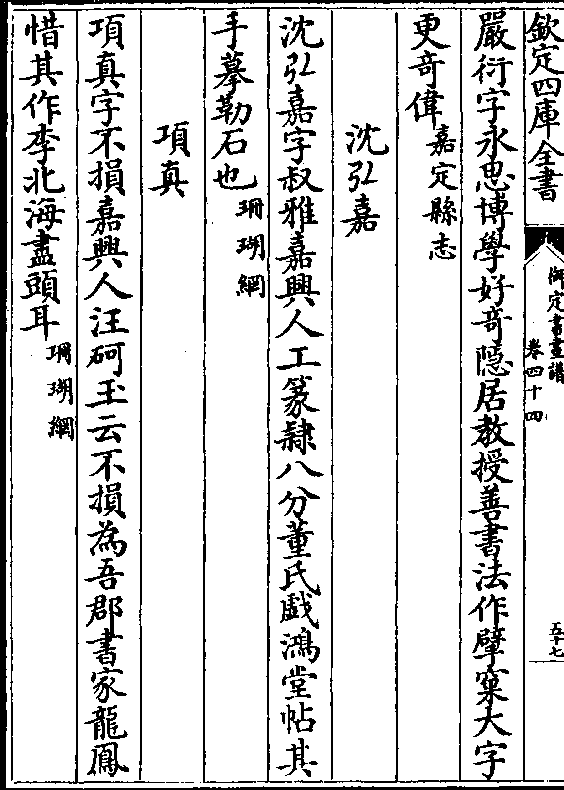 欽定四庫全書
御定書畫譜
卷四十四
五十七
嚴衍字永思博學好奇隱居教授善書法作擘窠大字
更奇偉嘉定縣志
沈弘嘉
沈弘嘉字叔雅嘉興人工篆隸八分董氏戲鴻堂帖其
手摹勒石也珊瑚網
項真
項真字不損嘉興人汪砢玉云不損為吾郡書家龍鳳
惜其作李北海盡頭耳珊瑚網